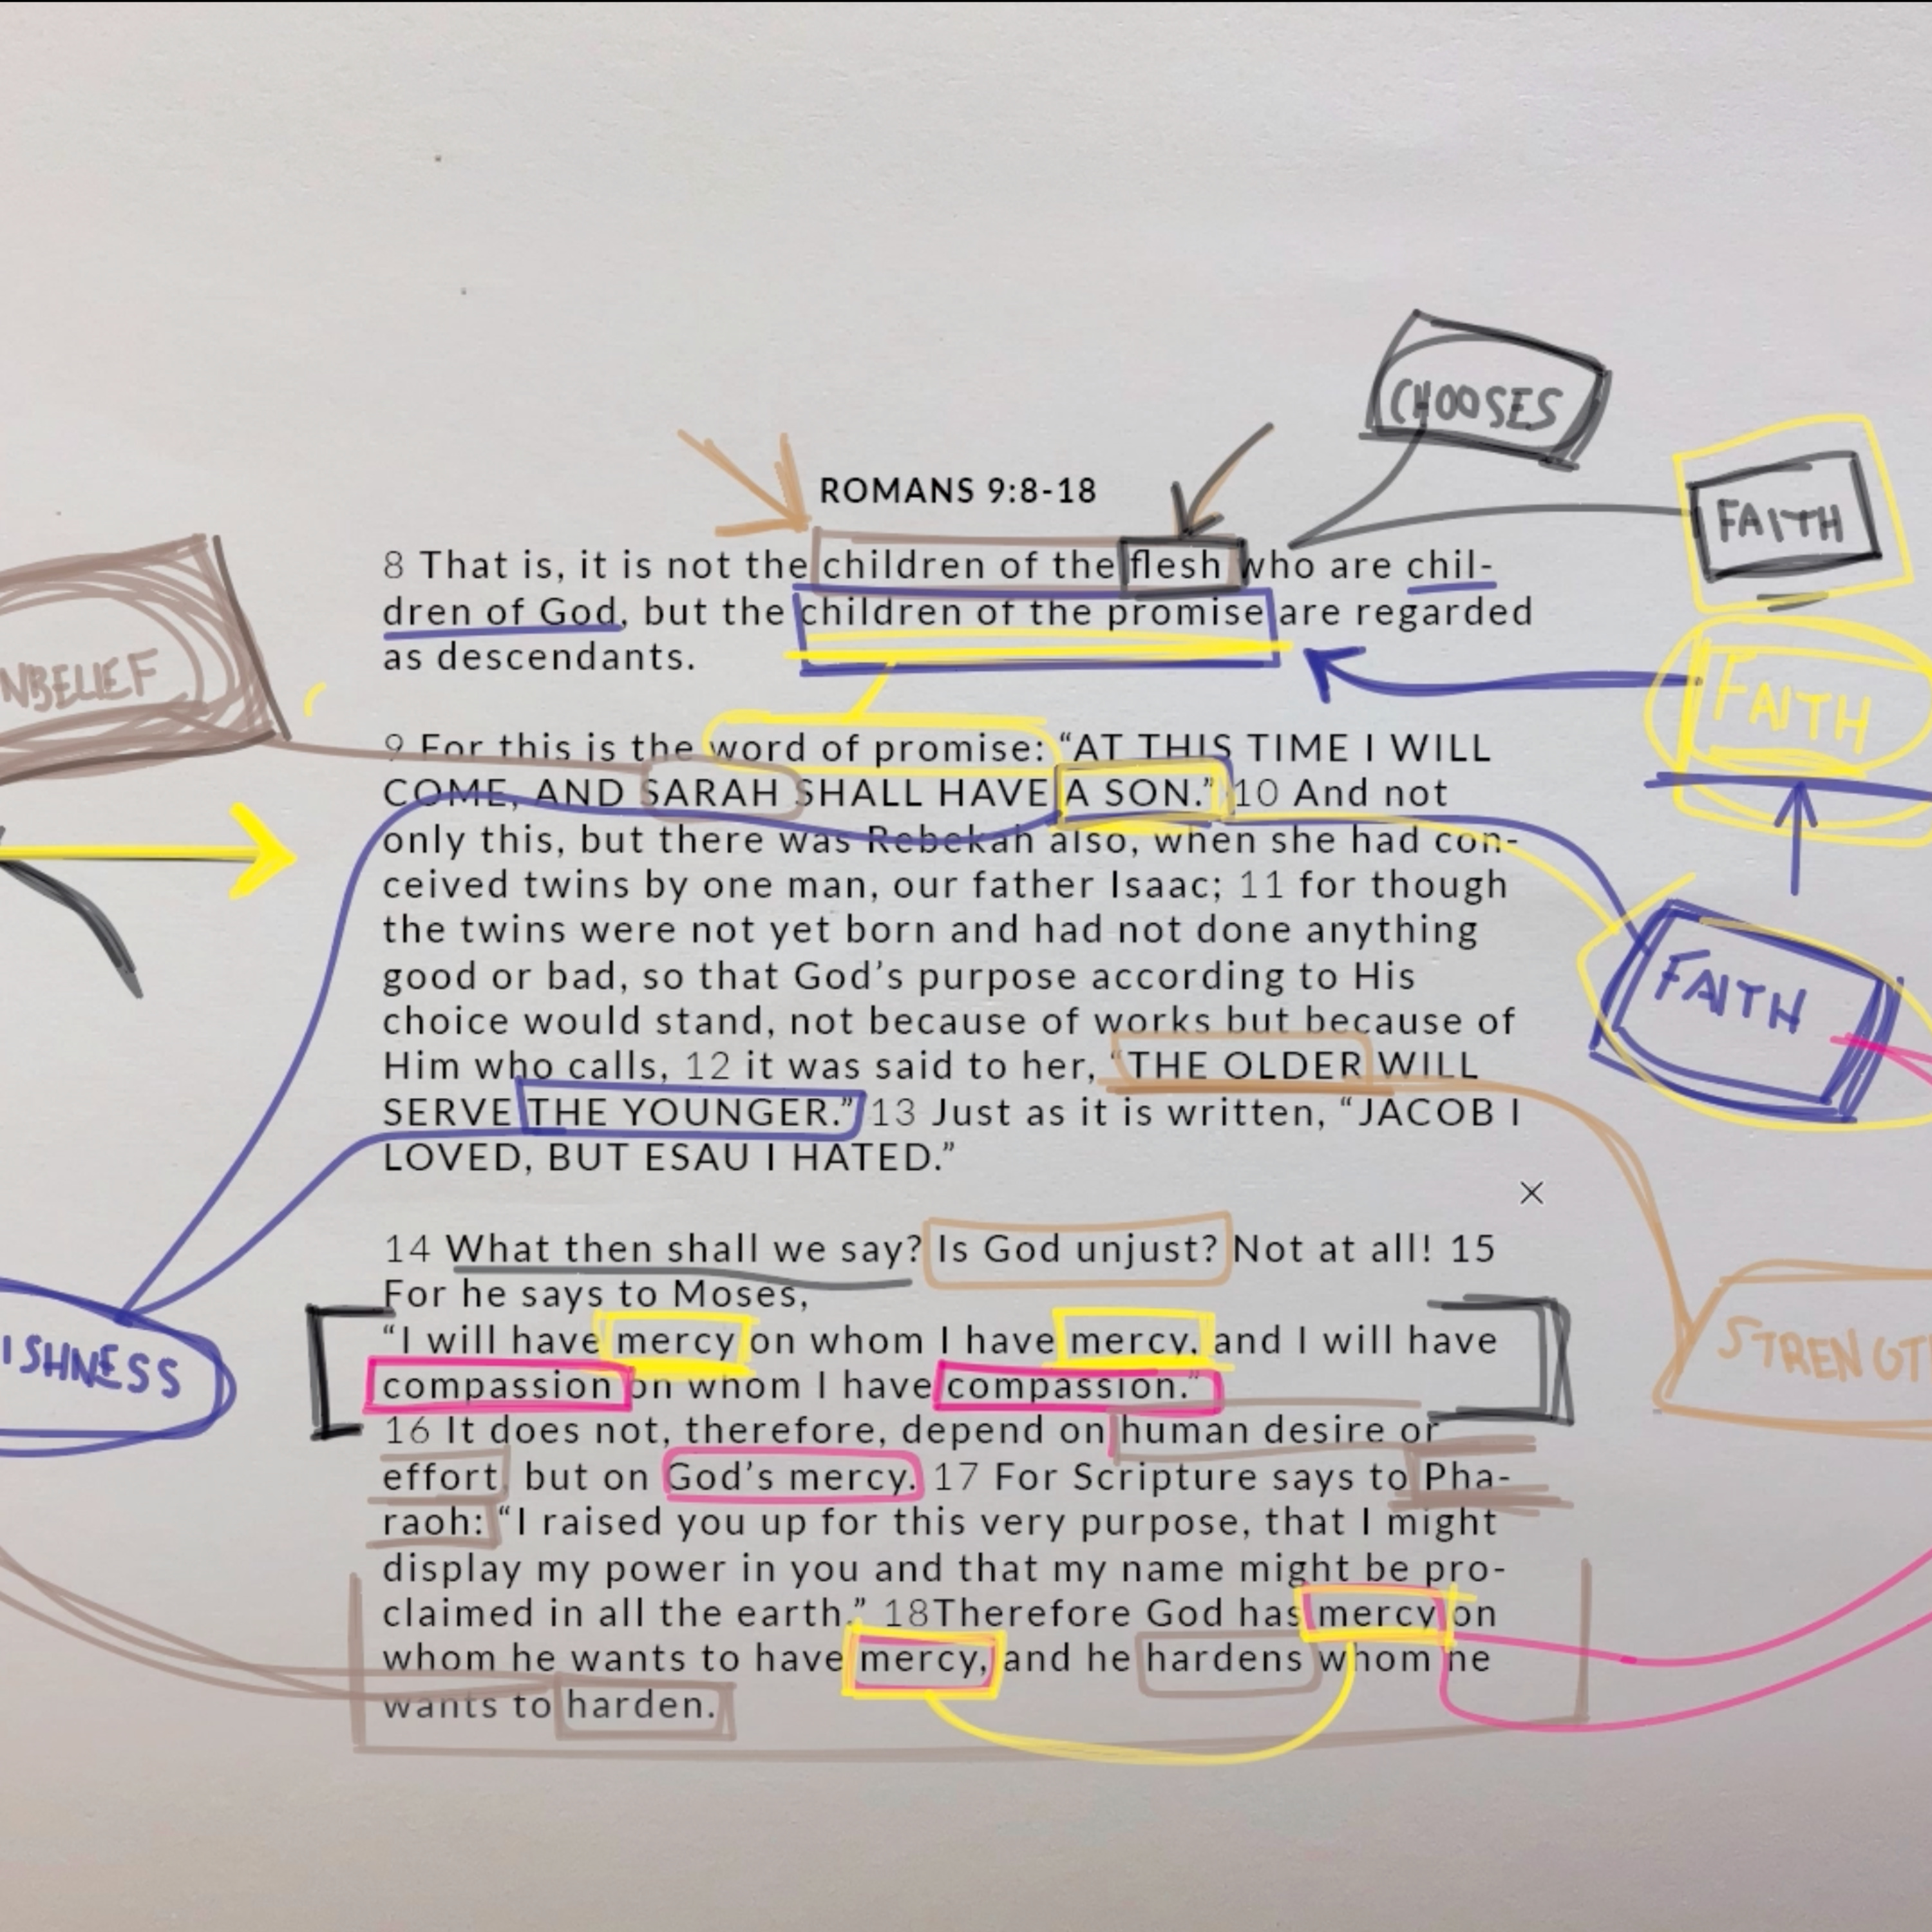 CHOOSES
ROMANS 9:8-18
FAITH
8 That is, it is not the children of the flesh who are chil-
dren of God, but the children of the promise are regarded
as descendants.
NBELIEF
FAITH
9 For this is the word of promise: “AT THIS TIME I WILL
COME, AND SARAH SHALL HAVE A SON.” 10 And not
only this, but there was Rebekah also, when she had con-
ceived twins by one man, our father Isaac; 11 for though
the twins were not yet born and had not done anything
good or bad, so that God’s purpose according to His
FAITH
choice would stand, not because of works but because of
Him who calls, 12 it was said to her, “THE OLDER WILL
SERVE THE YOUNGER.” 13 Just as it is written, “JACOB I
LOVED, BUT ESAU I HATED.”
14 What then shall we say? Is God unjust? Not at all! 15
For he says to Moses,
“I will have mercy on whom I have mercy, and I will have
STRENGT
ISHNESS
compassion on whom I have compassion.”
16 It does not, therefore, depend on human desire or
effort, but on God’s mercy. 17 For Scripture says to Pha-
raoh: “I raised you up for this very purpose, that I might
display my power in you and that my name might be pro-
claimed in all the earth.” 18Therefore God has mercy on
whom he wants to have mercy, and he hardens whom he
wants to harden.